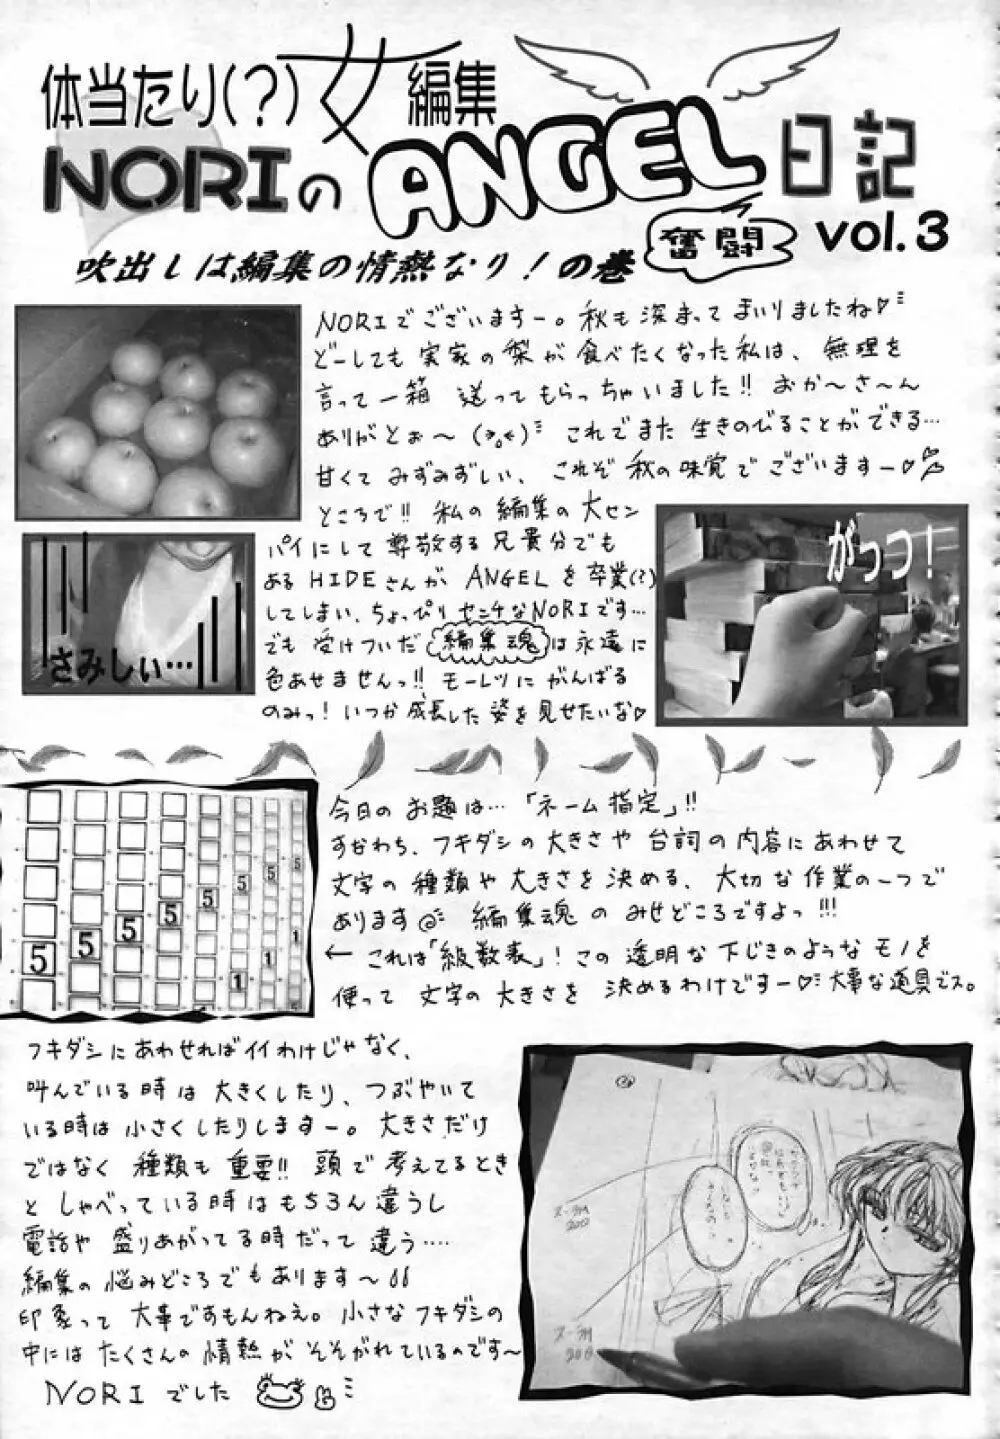 体当たり(?)女編集
NORIのANGEL日記
奮闘
vol.3
吹出しは編集の情熱なり!の巻
NORIでございますー。秋も深まってまいりましたね♡
どーしても実家の梨が食べたくなった私は、無理を
言って一箱送ってもらっちゃいました!! おか〜さ〜ん
ありがとぉ〜 これでまた生きのびることができる…
甘くてみずみずしい、これぞ秋の味覚でございますー♡
ところで!! 私の編集の大セン
パイにして尊敬する兄貴分でも
あるHIDEさんがANGELを卒業(?)
してしまい、ちょっぴりセンチなNORIです…
でも受けついだ編集魂は永遠に
色あせませんっ!! モーレツにがんばる
のみっ! いつか成長した姿を見せたいな♡
さみしぃ…
がっつ!
今日のお題は…「ネーム指定」!!
すなわち、フキダシの大きさや台詞の内容にあわせて
文字の種類や大きさを決める、大切な作業の一つで
あります 編集魂のみせどころですよっ!!!
← これは「級数表」! この透明な下じきのようなモノを
使って文字の大きさを決めるわけですー♡大事な道具でス。
5 5 5 5 5 5 5 5
1 1 1
フキダシにあわせればイイわけじゃなく、
叫んでいる時は大きくしたり、つぶやいて
いる時は小さくしたりしますー。大きさだけ
ではなく種類も重要!! 頭で考えてるとき
としゃべっている時はもちろん違うし
電話や盛りあがってる時だって違う……
編集の悩みどころでもあります〜
印象って大事ですもんねえ。小さなフキダシの
中にはたくさんの情熱がそそがれているのです〜
NORIでした